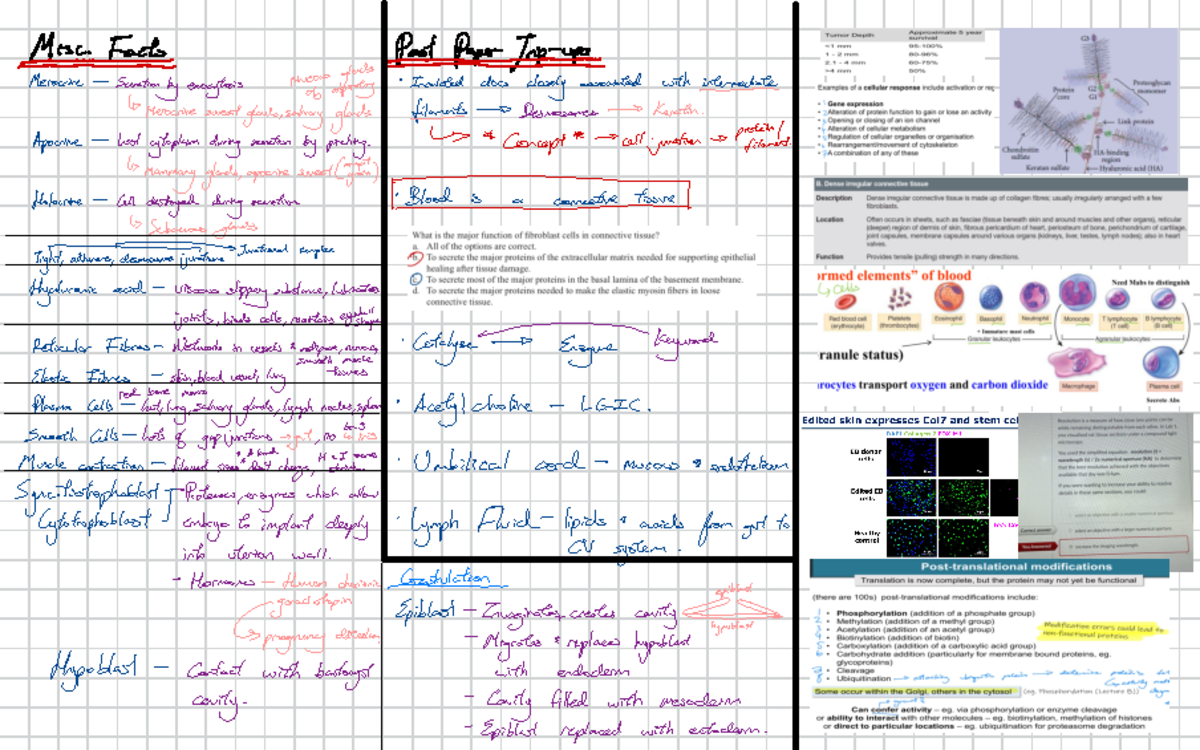 Misc. Facts
Merocrine — Secretion by exocytosis
Merocrine sweat glands, salivary glands
Apocrine — Lost cytoplasm during secretion by pinching.
Mammary glands, apocrine sweat
Holocrine — Cell destroyed during secretion
Sebaceous glands
Tight, adherens, desmosome junctions
Junctional complex
Hyaluronic acid — viscous slippery substance, lubricates
joints, binds cells, maintains eyeball shape
Reticular Fibres — Networks in vessels &
smooth muscle
tissues
Elastic Fibres — skin, blood vessel, lung
red bone
Plasma Cells — gut, lung, salivary glands, lymph nodes, spleen
Smooth Cells — Lots of gap junctions → gut, no
Muscle contraction — filament
Syncitiotrophoblast
Cytotrophoblast
Proteases, enzymes which allow
embryo to implant deeply
into uterton wall.
- Hormones — Human chorionic
gonadotropin
pregnancy detection
Hypoblast — Contact with blastocyst
cavity.
Past Paper Trip-ups
· Involved discs closely associated with intermediate
filaments → Desmosome → Keratin.
* Concept * → cell junction → protein/
filament.
· Blood is a connective tissue
What is the major function of fibroblast cells in connective tissue?
a. All of the options are correct.
b. To secrete the major proteins of the extracellular matrix needed for supporting epithelial
healing after tissue damage.
c. To secrete most of the major proteins in the basal lamina of the basement membrane.
d. To secrete the major proteins needed to make the elastic myosin fibers in loose
connective tissue.
· Catalyse → Enzyme
Keyword
· Acetylcholine — LGIC.
· Umbilical cord — mucous & endothelium
· Lymph Fluid — lipids & avoids from gut to
CV system.
Gastrulation
Epiblast — Invaginates, creates cavity
epiblast
hypoblast
— Migrates & replaces hypoblast
with endoderm
— Cavity filled with mesoderm
— Epiblast replaced with ectoderm.
Tumor Depth Approximate 5 year survival
<1 mm 95-100%
1 - 2 mm 80-96%
2.1 - 4 mm 60-75%
>4 mm 50%
Examples of a cellular response include activation or reg
• Gene expression
• Alteration of protein function to gain or lose an activity
• Opening or closing of an ion channel
• Alteration of cellular metabolism
• Regulation of cellular organelles or organisation
• Rearrangement/movement of cytoskeleton
• A combination of any of these
G3
G2
G1
Protein core
Proteoglycan monomer
Link protein
HA-binding region
Chondroitin sulfate
Keratan sulfate
Hyaluronic acid (HA)
B. Dense irregular connective tissue
Description Dense irregular connective tissue is made up of collagen fibres; usually irregularly arranged with a few
fibroblasts.
Location Often occurs in sheets, such as fasciae (tissue beneath skin and around muscles and other organs), reticular
(deeper) region of dermis of skin, fibrous pericardium of heart, periosteum of bone, perichondrium of cartilage,
joint capsules, membrane capsules around various organs (kidneys, liver, testes, lymph nodes); also in heart
valves.
Function Provides tensile (pulling) strength in many directions.
ormed elements" of blood
cells
Need Mabs to distinguish
Red blood cell (erythrocyte)
Platelets (thrombocytes)
Eosinophil
Basophil
Neutrophil
Monocyte
T lymphocyte (T cell)
B lymphocyte (B cell)
+ Immature mast cells
Granular leukocytes
Agranular leukocytes
ranule status)
rocytes transport oxygen and carbon dioxide
Macrophage
Plasma cell
Secrete Abs
Edited skin expresses Col7 and stem cel
EB donor cells
Edited EB cells
Healthy control
Post-translational modifications
Translation is now complete, but the protein may not yet be functional
(there are 100s) post-translational modifications include:
1 • Phosphorylation (addition of a phosphate group)
2 • Methylation (addition of a methyl group)
3 • Acetylation (addition of an acetyl group)
4 • Biotinylation (addition of biotin)
5 • Carboxylation (addition of a carboxylic acid group)
6 • Carbohydrate addition (particularly for membrane bound proteins, eg.
glycoproteins)
7 • Cleavage
8 • Ubiquitination
Modification errors could lead to
non-functional proteins
Some occur within the Golgi, others in the cytosol
Can confer activity – eg. via phosphorylation or enzyme cleavage
or ability to interact with other molecules – eg. biotinylation, methylation of histones
or direct to particular locations – eg. ubiquitination for proteasome degradation